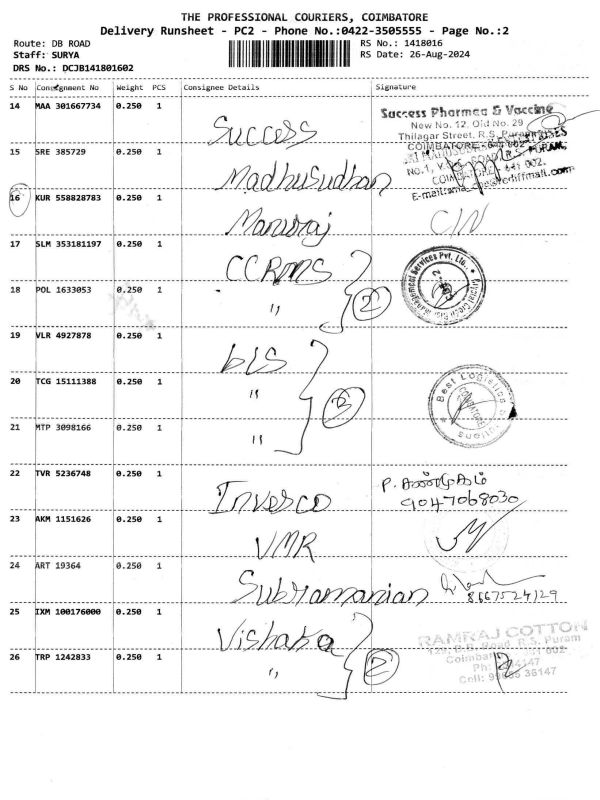 THE PROFESSIONAL COURIERS, COIMBATORE
Delivery Runsheet - PC2 - Phone No.:0422-3505555 - Page No.:2
Route: DB ROAD RS No.: 1418016
Staff: SURYA RS Date: 26-Aug-2024
DRS No.: DCJB141801602
S No Consignment No Weight PCS Consignee Details Signature
14 MAA 301667734 0.250 1 Success
Success Pharmed & Vaccine
New No. 12, Old No. 29
Thilagar Street, R.S. Puram
COIMBATORE - 641 002
15 SRE 385729 0.250 1 Madhusudhan
R.S. PURAM,
COIMBATORE - 641 002.
16 KUR 558828783 0.250 1 Manuraj C/N
17 SLM 353181197 0.250 1 CCRMS
Management Services Pvt. Ltd.,
18 POL 1633053 0.250 1 " 2
19 VLR 4927878 0.250 1 bLS
20 TCG 15111388 0.250 1 " 3
Best Logistics
COIMBATORE
21 MTP 3098166 0.250 1 "
22 TVR 5236748 0.250 1 Invesco
P. சண்முகம்
9047068030
23 AKM 1151626 0.250 1 VMR
24 ART 19364 0.250 1 Subramanian
8667524129
25 IXM 100176000 0.250 1 Vishaka
RAMRAJ COTTON
D.B. Road, R.S. Puram
26 TRP 1242833 0.250 1 " 2